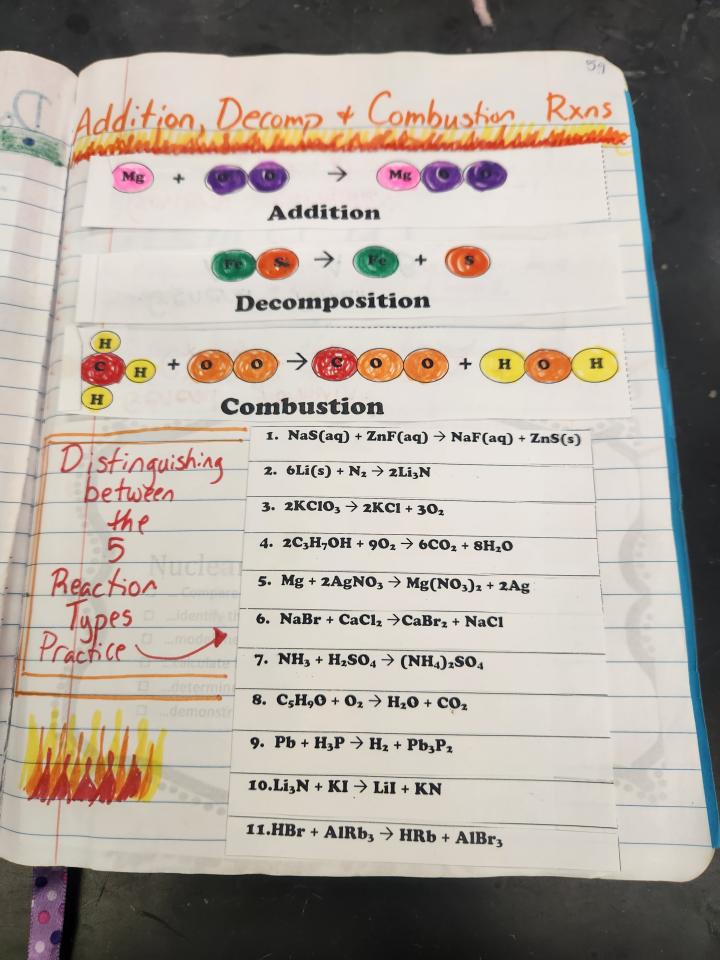 59
Addition, Decomp & Combustion Rxns
Mg + O O → Mg O O
Addition
Fe S → Fe + S
Decomposition
H
C H + O O → C O O + H O H
H
Combustion
Distinguishing
between
the
5
Reaction
Types
Practice
1. NaS(aq) + ZnF(aq) → NaF(aq) + ZnS(s)
2. 6Li(s) + N₂ → 2Li₃N
3. 2KClO₃ → 2KCl + 3O₂
4. 2C₃H₇OH + 9O₂ → 6CO₂ + 8H₂O
5. Mg + 2AgNO₃ → Mg(NO₃)₂ + 2Ag
6. NaBr + CaCl₂ →CaBr₂ + NaCl
7. NH₃ + H₂SO₄ → (NH₄)₂SO₄
8. C₅H₉O + O₂ → H₂O + CO₂
9. Pb + H₃P → H₂ + Pb₃P₂
10.Li₃N + KI → LiI + KN
11.HBr + AlRb₃ → HRb + AlBr₃
Nuclear